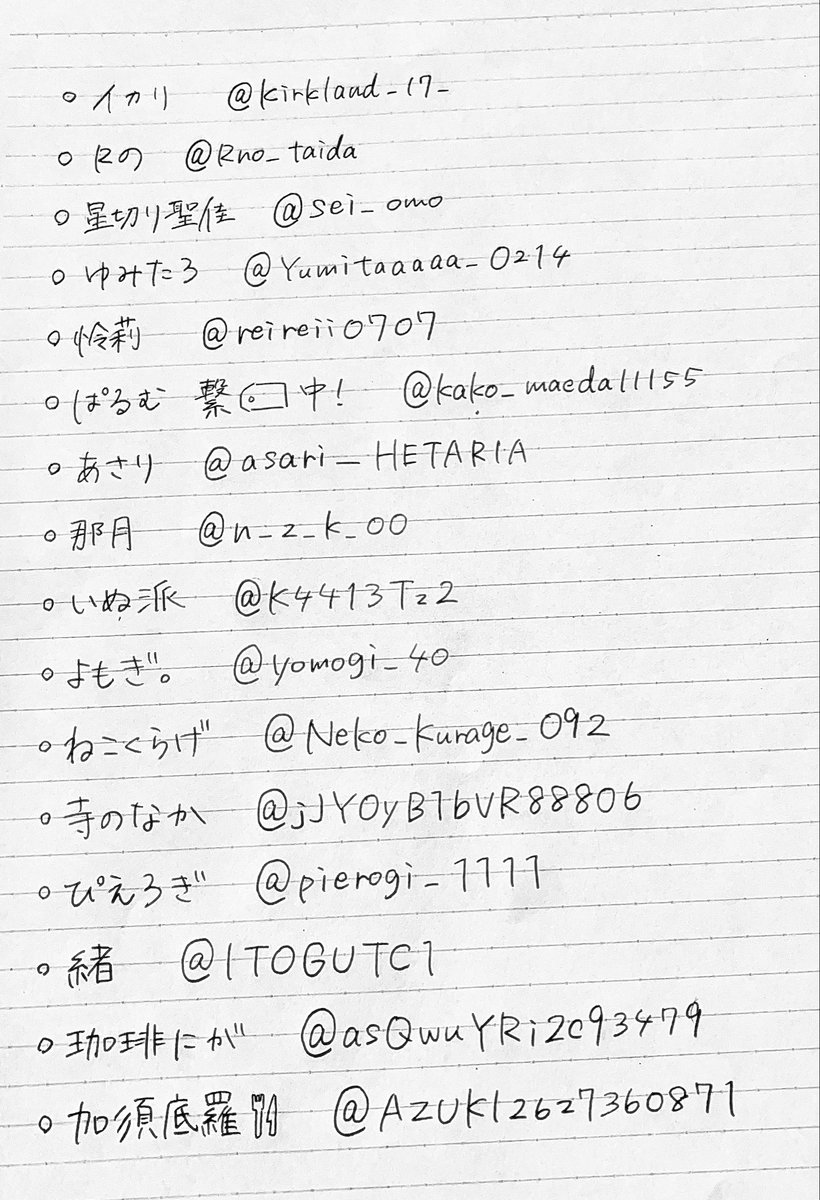 ○ イカリ @kirkland_17_
○ Rの @Rno_taida
○ 星切り聖佳 @sei_omo
○ ゆみたろ @Yumitaaaaa_0214
○ 怜莉 @reireii0707
○ ぱるむ 繋 中! @kako_maeda11155
○ あさり @asari_HETARIA
○ 那月 @n_z_k_00
○ いぬ派 @K4413Tz2
○ よもぎ。 @yomogi_40
○ ねこくらげ @Neko_Kurage_092
○ 寺のなか @jJYOyB7bVR88806
○ ぴえろぎ @pierogi_1111
○ 緒 @ITOGUTC1
○ 珈琲にが @asQwuYRi2c93479
○ 加須底羅🍴 @AZUKI2627360871